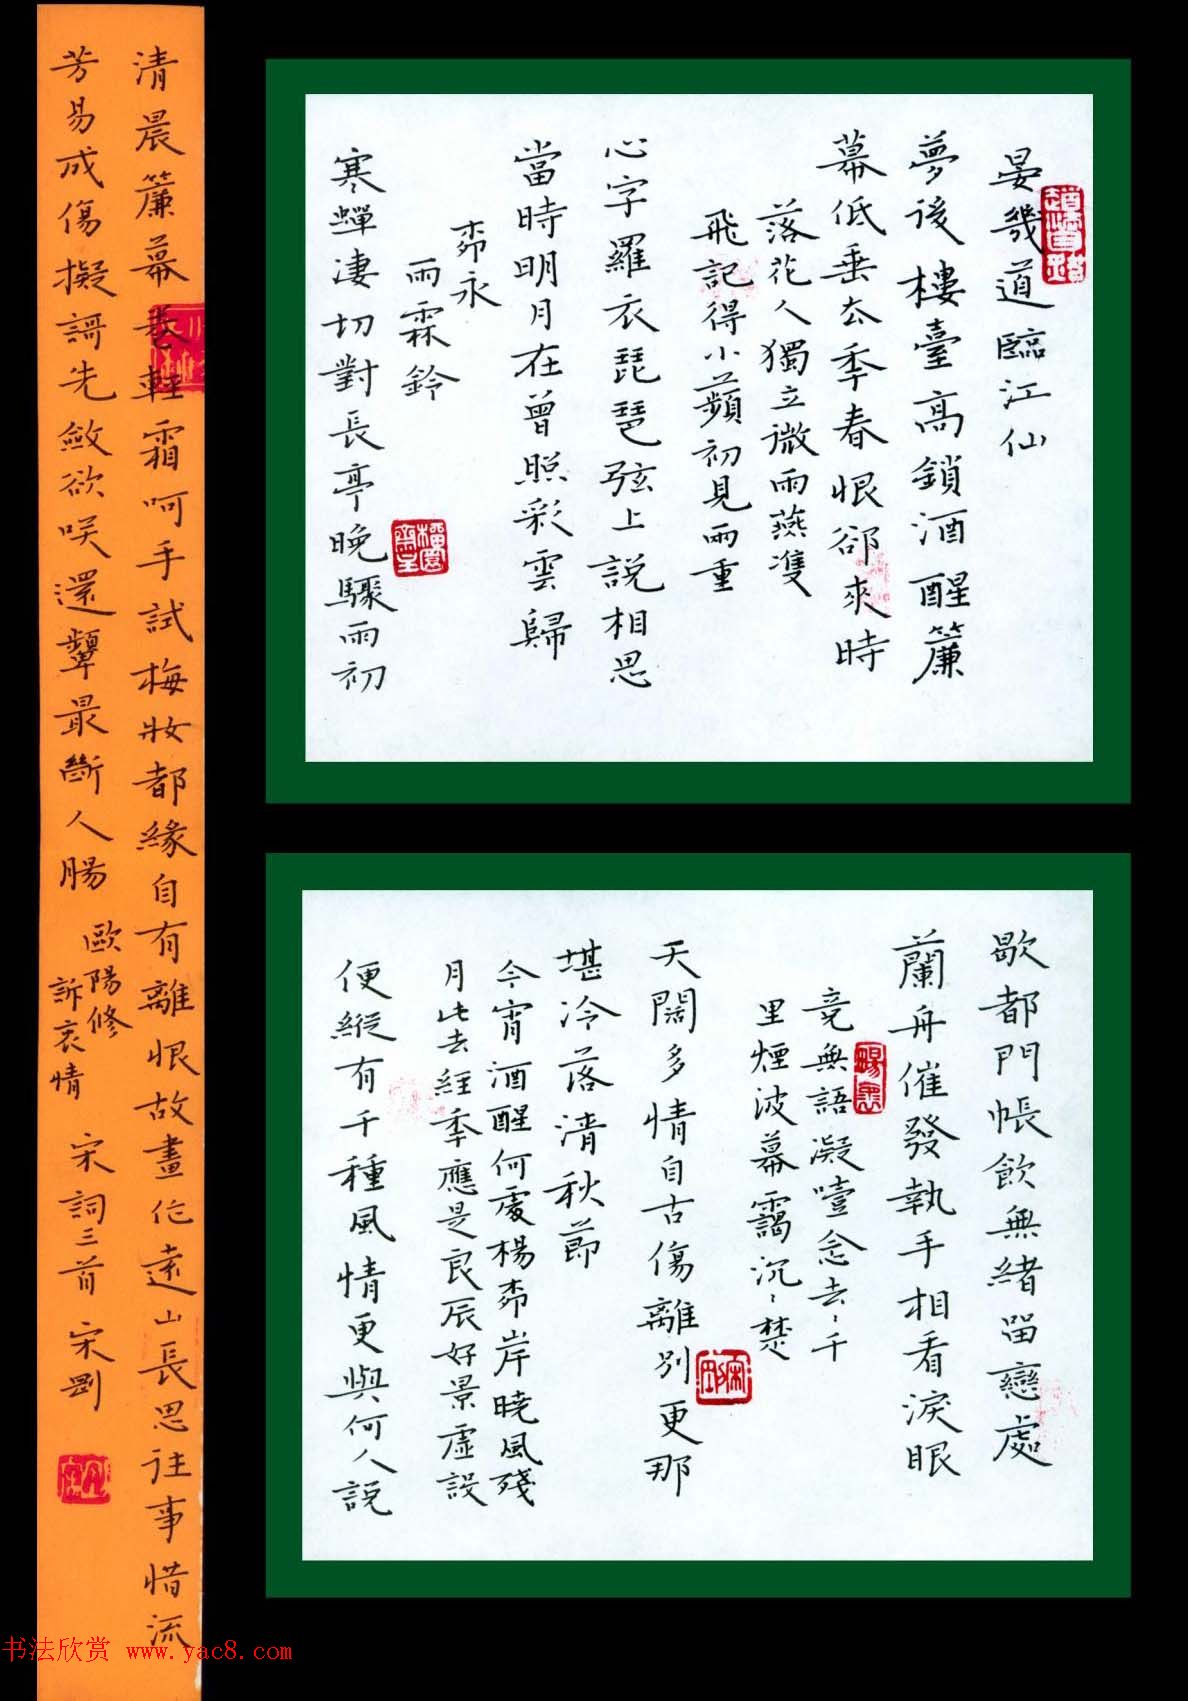 晏幾道臨江仙
夢後樓臺高鎖酒醒簾
幕低垂去季春恨郤來時
落花人獨立微雨燕雙
飛記得小蘋初見兩重
心字羅衣琵琶弦上說相思
當時明月在曾照彩雲歸
柳永
雨霖鈴
寒蟬淒切對長亭晚驟雨初
歇都門帳飲無緒留戀處
蘭舟催發執手相看淚眼
竟無語凝噎念去〻千
里煙波暮靄沉〻楚
天闊多情自古傷離別更那
堪冷落清秋節
今宵酒醒何處楊柳岸曉風殘
月此去經季應是良辰好景虛設
便縱有千種風情更與何人說
清晨簾幕卷輕霜呵手試梅妝都緣自有離恨故畫作遠山長思往事惜流
芳易成傷擬謌先斂欲咲還顰最斷人腸
歐陽修
訴衷情
宋詞三首 宋剛
书法欣赏 www.yac8.com